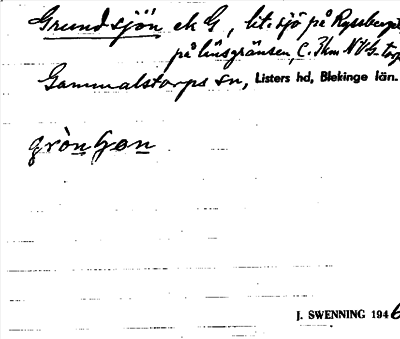 Grundsjön ek G, lit. sjö på Ryssberget
på länsgränsen, C. 7km NVG-torp
Gammalstorps sn, Listers hd, Blekinge län.
J. SWENNING 1946